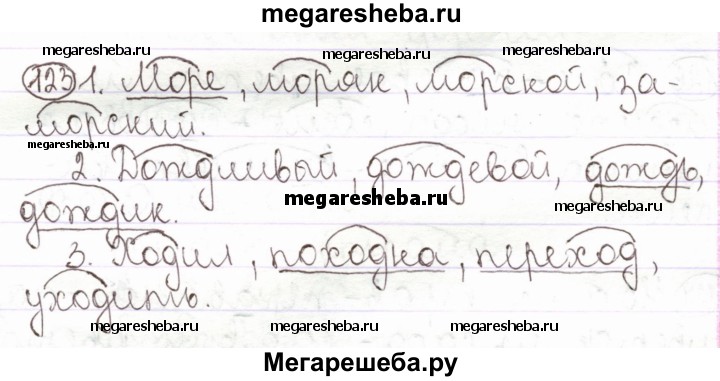 megaresheba.ru
megaresheba.ru megaresheba.ru megaresheba.ru
123 1. Море, моряк, морской, за-
морский.
megaresheba.ru
2. Дождливый, дождевой, дождь,
megaresheba.ru megaresheba.ru
дождик.
3. Ходил, походка, переход,
уходить.
megaresheba.ru megaresheba.ru megaresheba.ru
Мегарешеба.ру